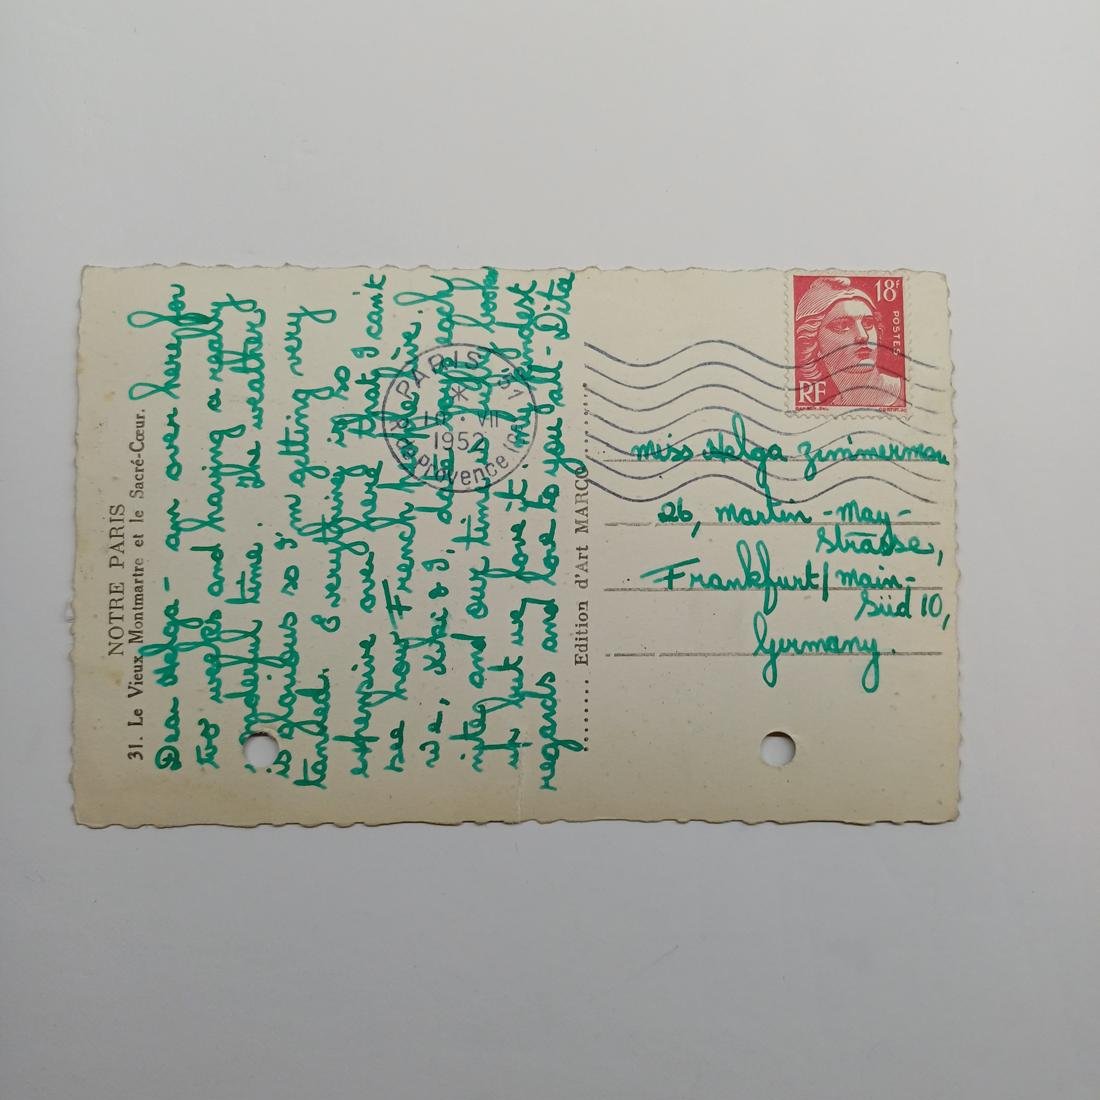 NOTRE PARIS
31. Le Vieux Montmartre et le Sacré-Cœur.
Dear Helga - am over here for
two weeks and having a really
wonderful time. The weather
is glorious so I'm getting very
tanned. Everything is so
expensive over here that I can't
see how French people live.
We, Kiki & I, do love
into and our time is
up but we love it. My kindest
regards and love to you all - Dita
Edition d'Art MARCO
18F
POSTES
RF
PARIS
VII
1952
R. de Provence
Miss Helga Zimmerman
26, Martin-May-
Strasse,
Frankfurt/Main-
Süd 10,
Germany.